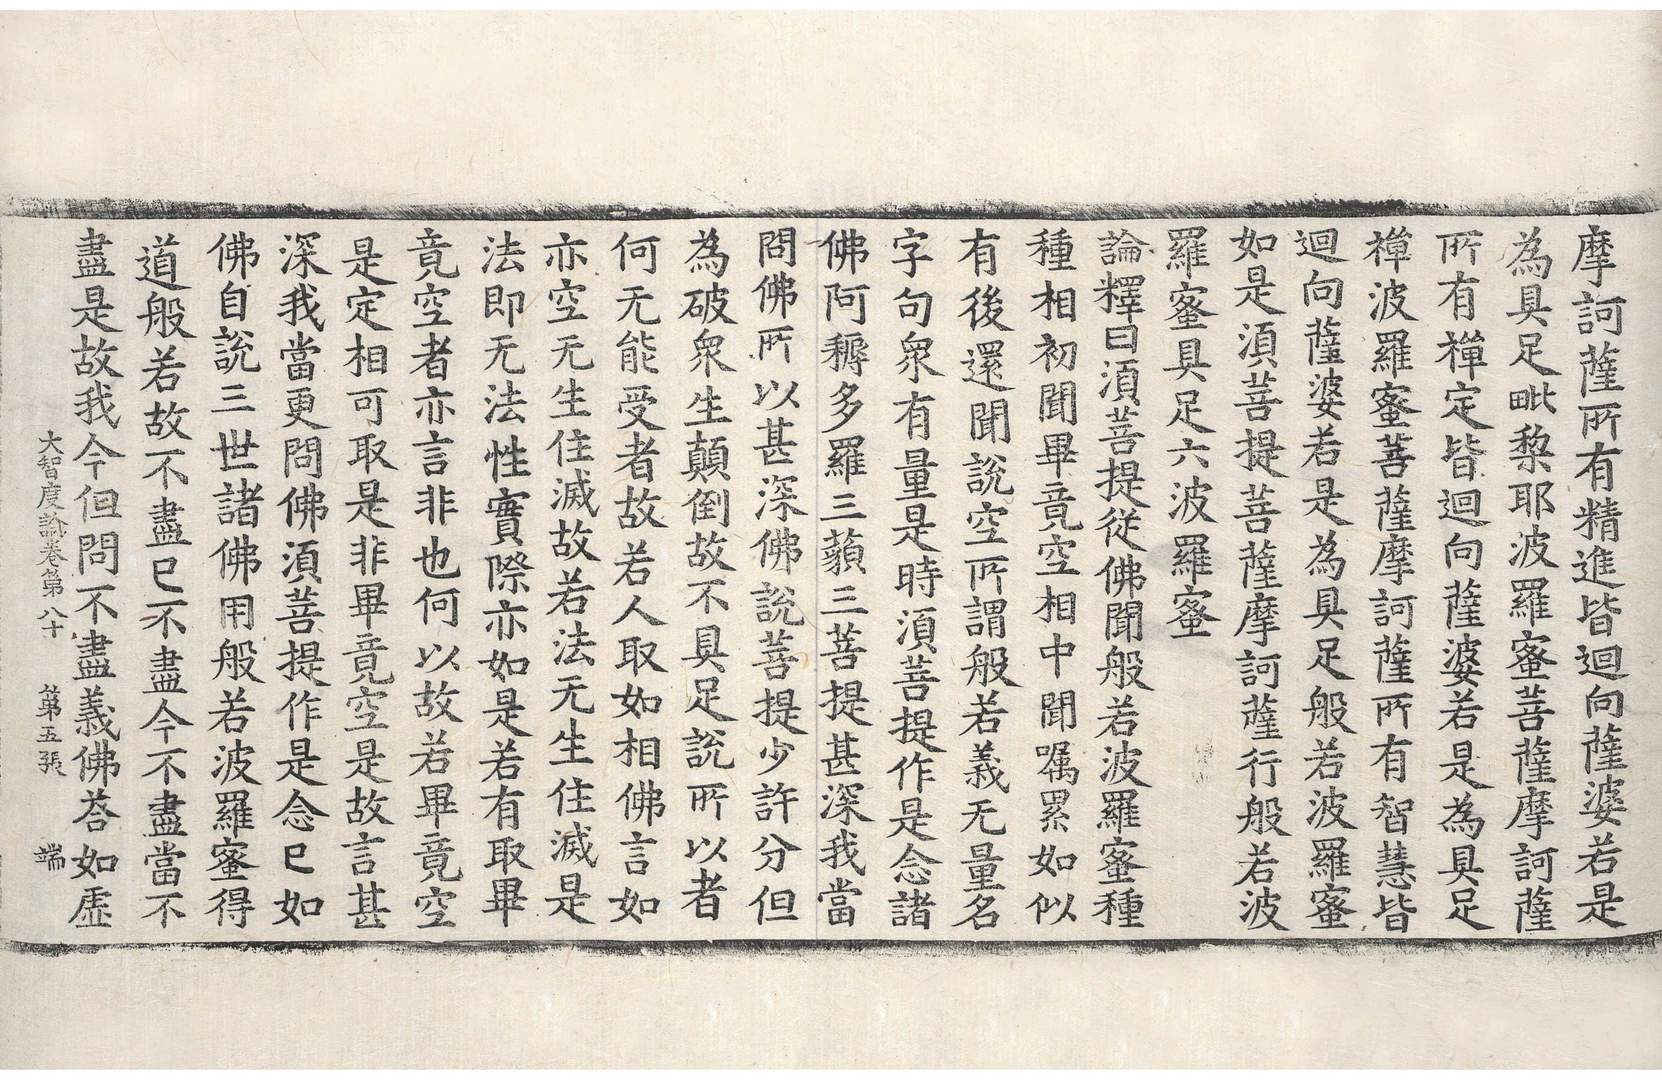 摩訶薩所有精進皆迴向薩婆若是
為具足毗梨耶波羅蜜菩薩摩訶薩
所有禪定皆迴向薩婆若是為具足
禪波羅蜜菩薩摩訶薩所有智慧皆
迴向薩婆若是為具足般若波羅蜜
如是須菩提菩薩摩訶薩行般若波
羅蜜具足六波羅蜜
論釋曰須菩提從佛聞般若波羅蜜種
種相初聞畢竟空相中聞嘱累如似
有後還聞說空所謂般若義无量名
字句衆有量是時須菩提作是念諸
佛阿耨多羅三藐三菩提甚深我當
問佛所以甚深佛說菩提少許分但
為破衆生顛倒故不具足說所以者
何无能受者故若人取如相佛言如
亦空无生住滅故若法无生住滅是
法即无法性實際亦如是若有取畢
竟空者亦言非也何以故若畢竟空
是定相可取是非畢竟空是故言甚
深我當更問佛須菩提作是念已如
佛自說三世諸佛用般若波羅蜜得
道般若故不盡已不盡今不盡當不
盡是故我今但問不盡義佛荅如虛
大智度論卷第八十 第五張 端